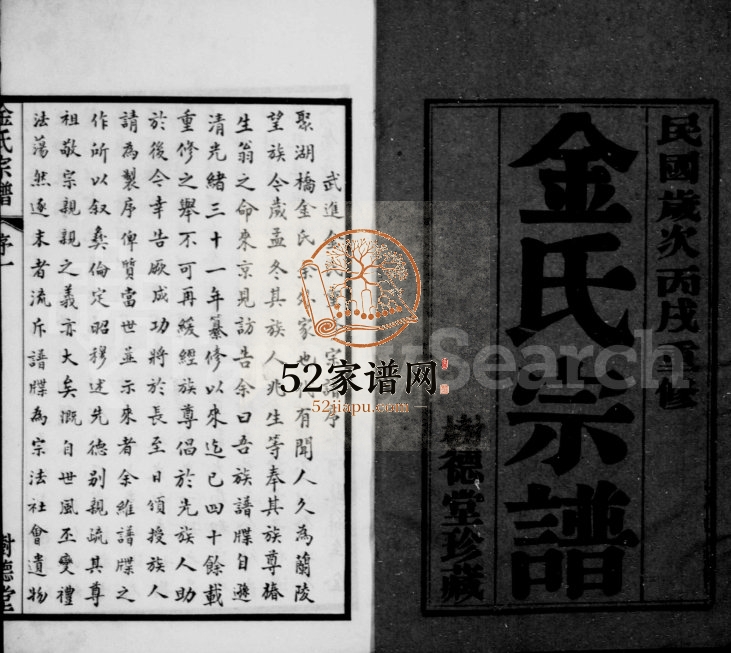 民國歲次丙戌重修
金氏宗譜
樹德堂珍藏
武進
聚湖橋金氏
家也
有聞人久為蘭陵
望族今歲孟冬其族人兆生等奉其族尊椿
生翁之命來京見訪告余曰吾族譜牒自遜
清光緒三十一年纂修以來迄已四十餘載
重修之舉不可再緩經族尊倡於先族人助
於後今幸告厥成功將於長至日頒授族人
請為製序俾質當世並示來者余維譜牒之
作所以叙彝倫定昭穆述先德別親疏其尊
祖敬宗親親之義亦大矣溉自世風丕變禮
法蕩然逐末者流斥譜牒為宗法社會遺物
金氏宗譜
序一
樹德堂
52家谱网
52jiapu.com
Search